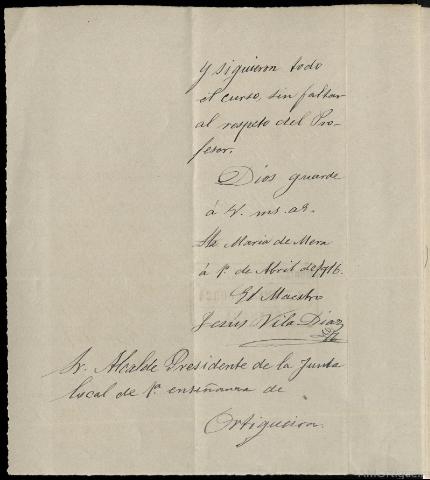 y siguieron todo
el curso, sin faltar
al respeto del Pro-
fesor.
Dios guarde
á V. ms. as.
Sta Maria de Mera
á 1º. de Abril de 1916.
El Maestro
Jesús Vila Diaz
Sr. Alcalde Presidente de la Junta
local de 1ª. enseñanza de
Ortigueira.